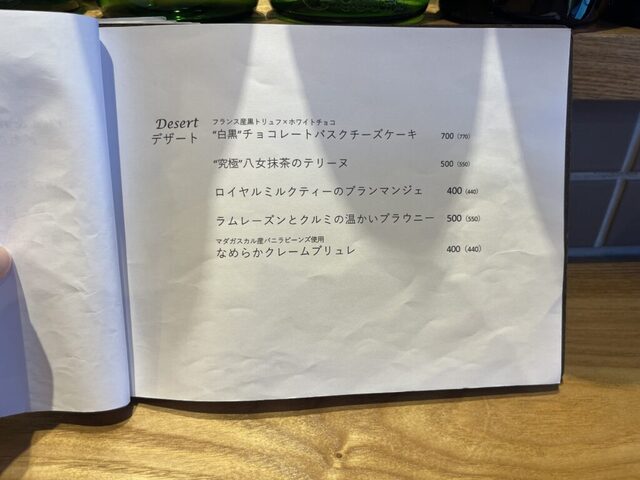 Desert
デザート
フランス産黒トリュフ×ホワイトチョコ
"白黒"チョコレートバスクチーズケーキ 700 (770)
"究極"八女抹茶のテリーヌ 500 (550)
ロイヤルミルクティーのブランマンジェ 400 (440)
ラムレーズンとクルミの温かいブラウニー 500 (550)
マダガスカル産バニラビーンズ使用
なめらかクレームブリュレ 400 (440)